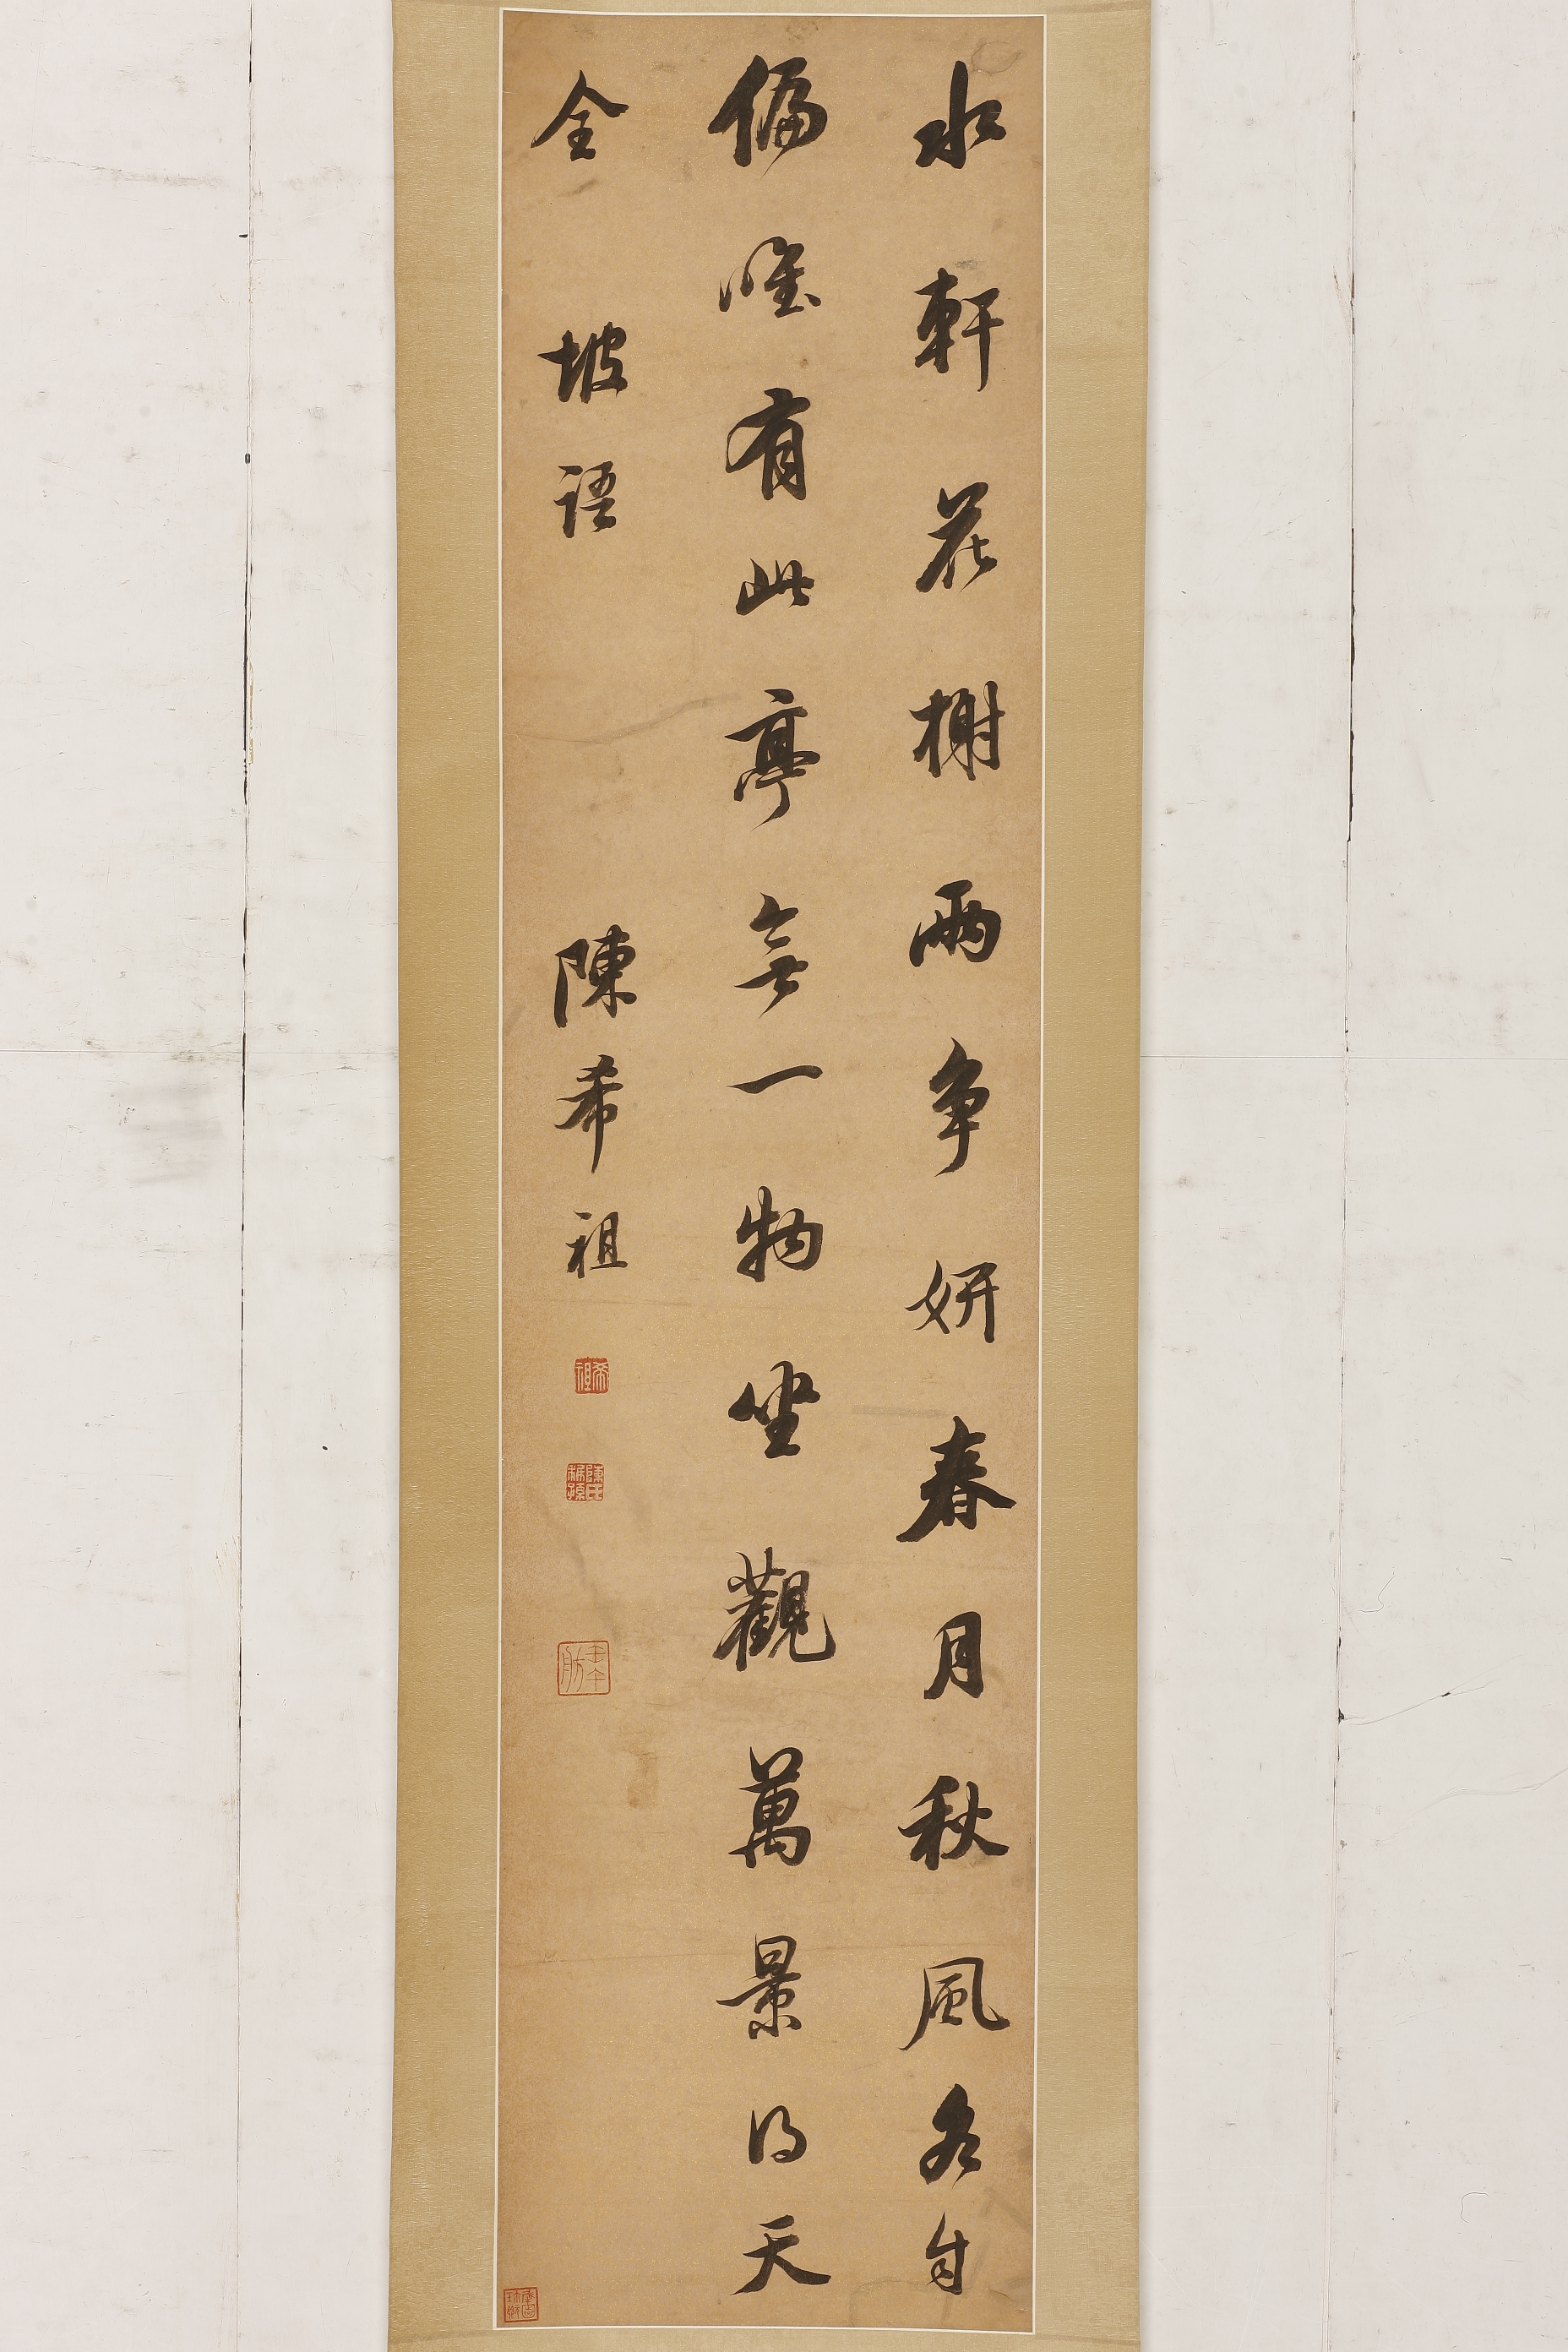 水軒花榭兩争妍春月秋風各自
偏唯有此亭無一物坐觀萬景得天
全 坡語 陳希祖
希祖
陳氏